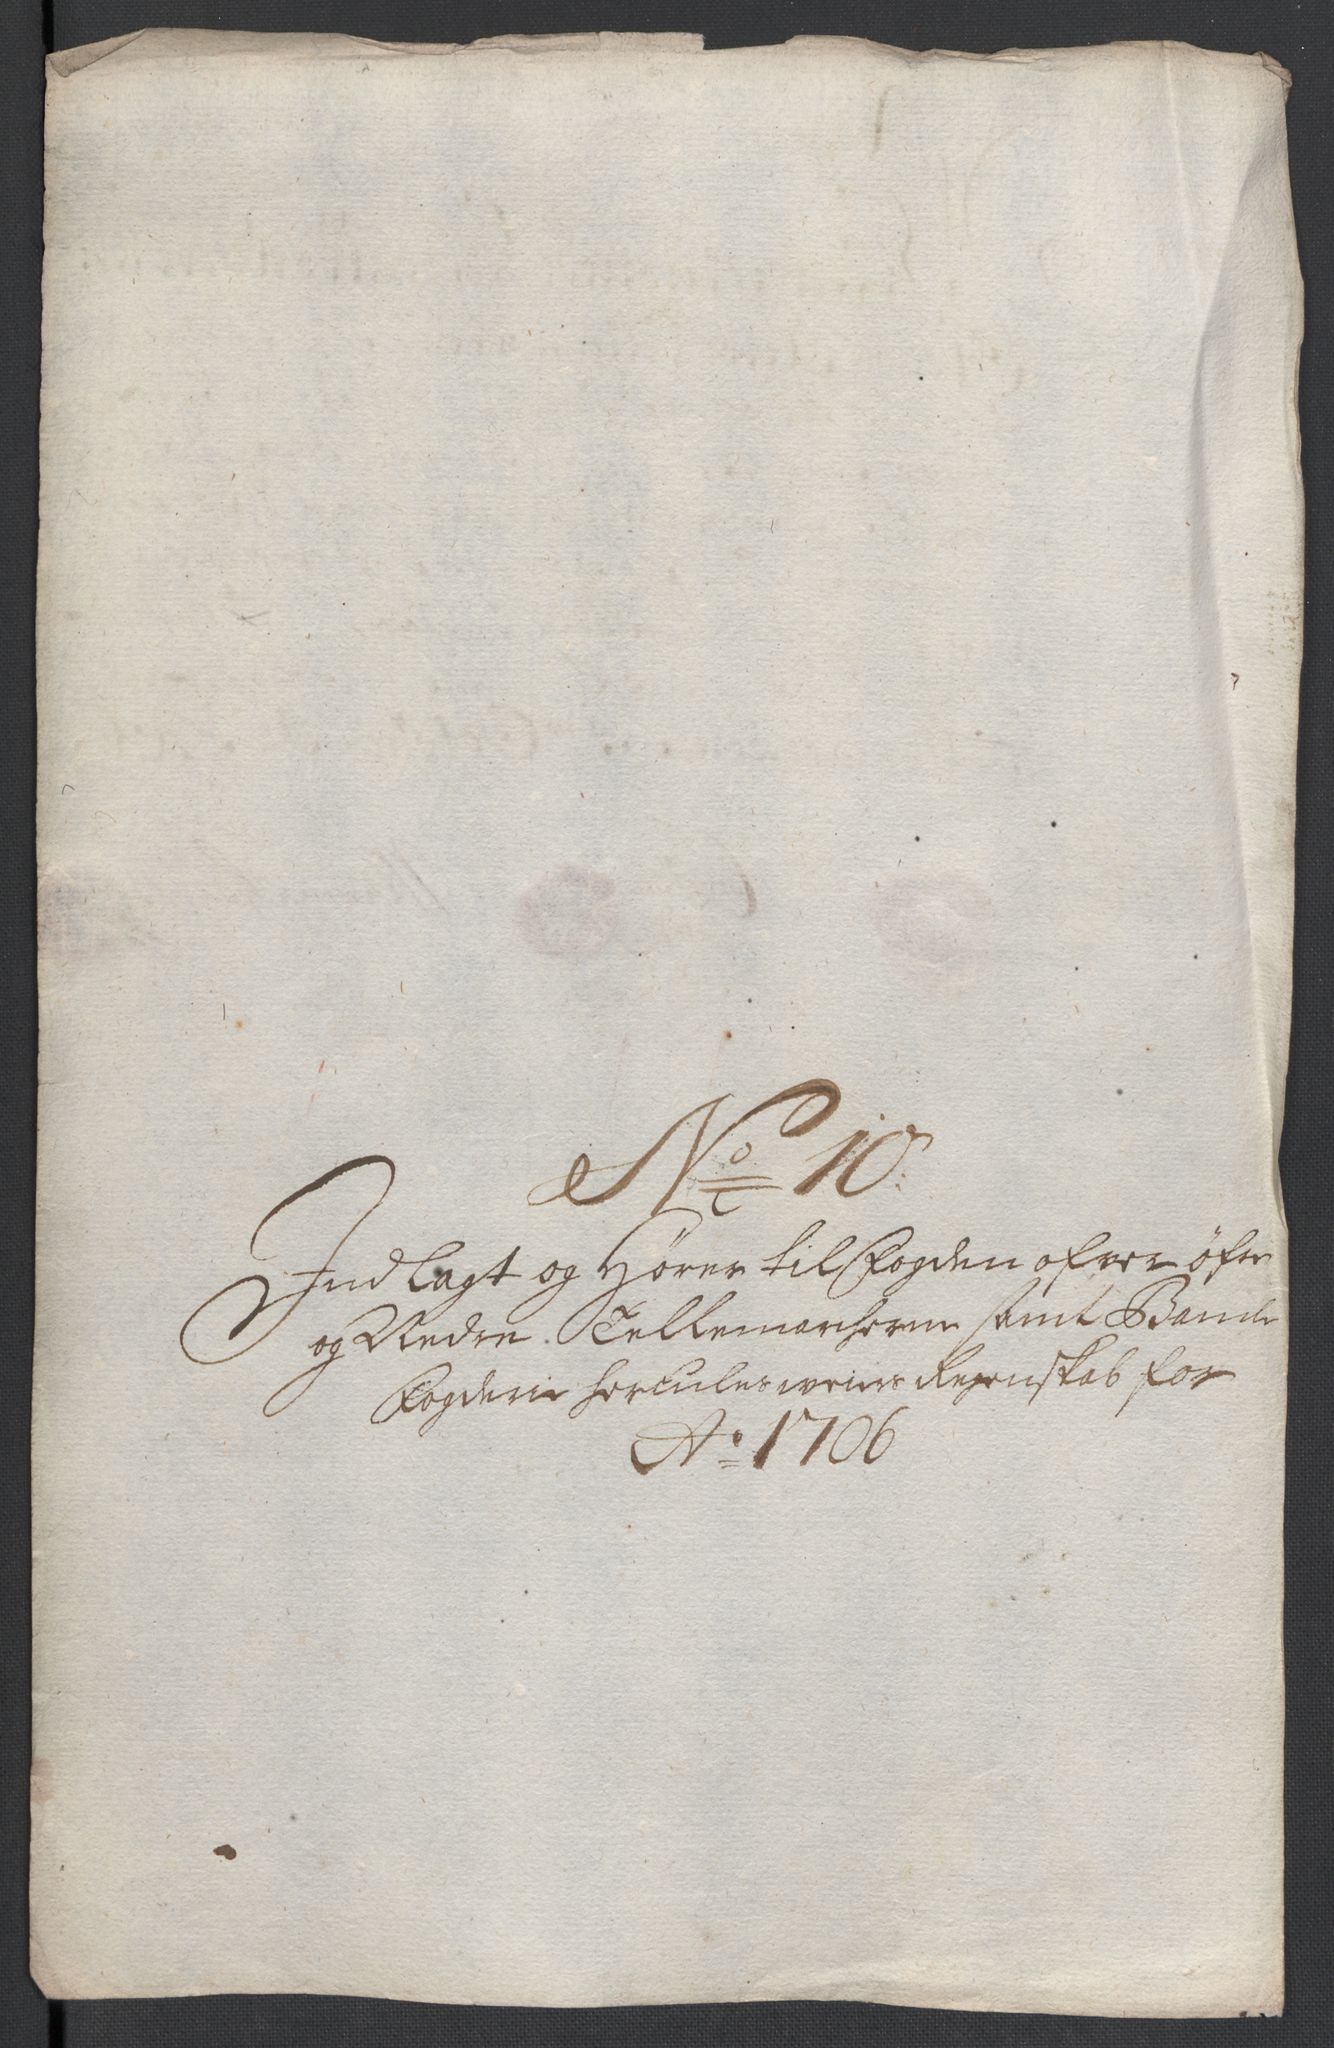 No 10.
Indlagt og Hører til Fogden ofver øfre
og Nedre Tellemarcherne samt Bamle
Fogderie Hercules weiers Regenskab for
Ao 1706